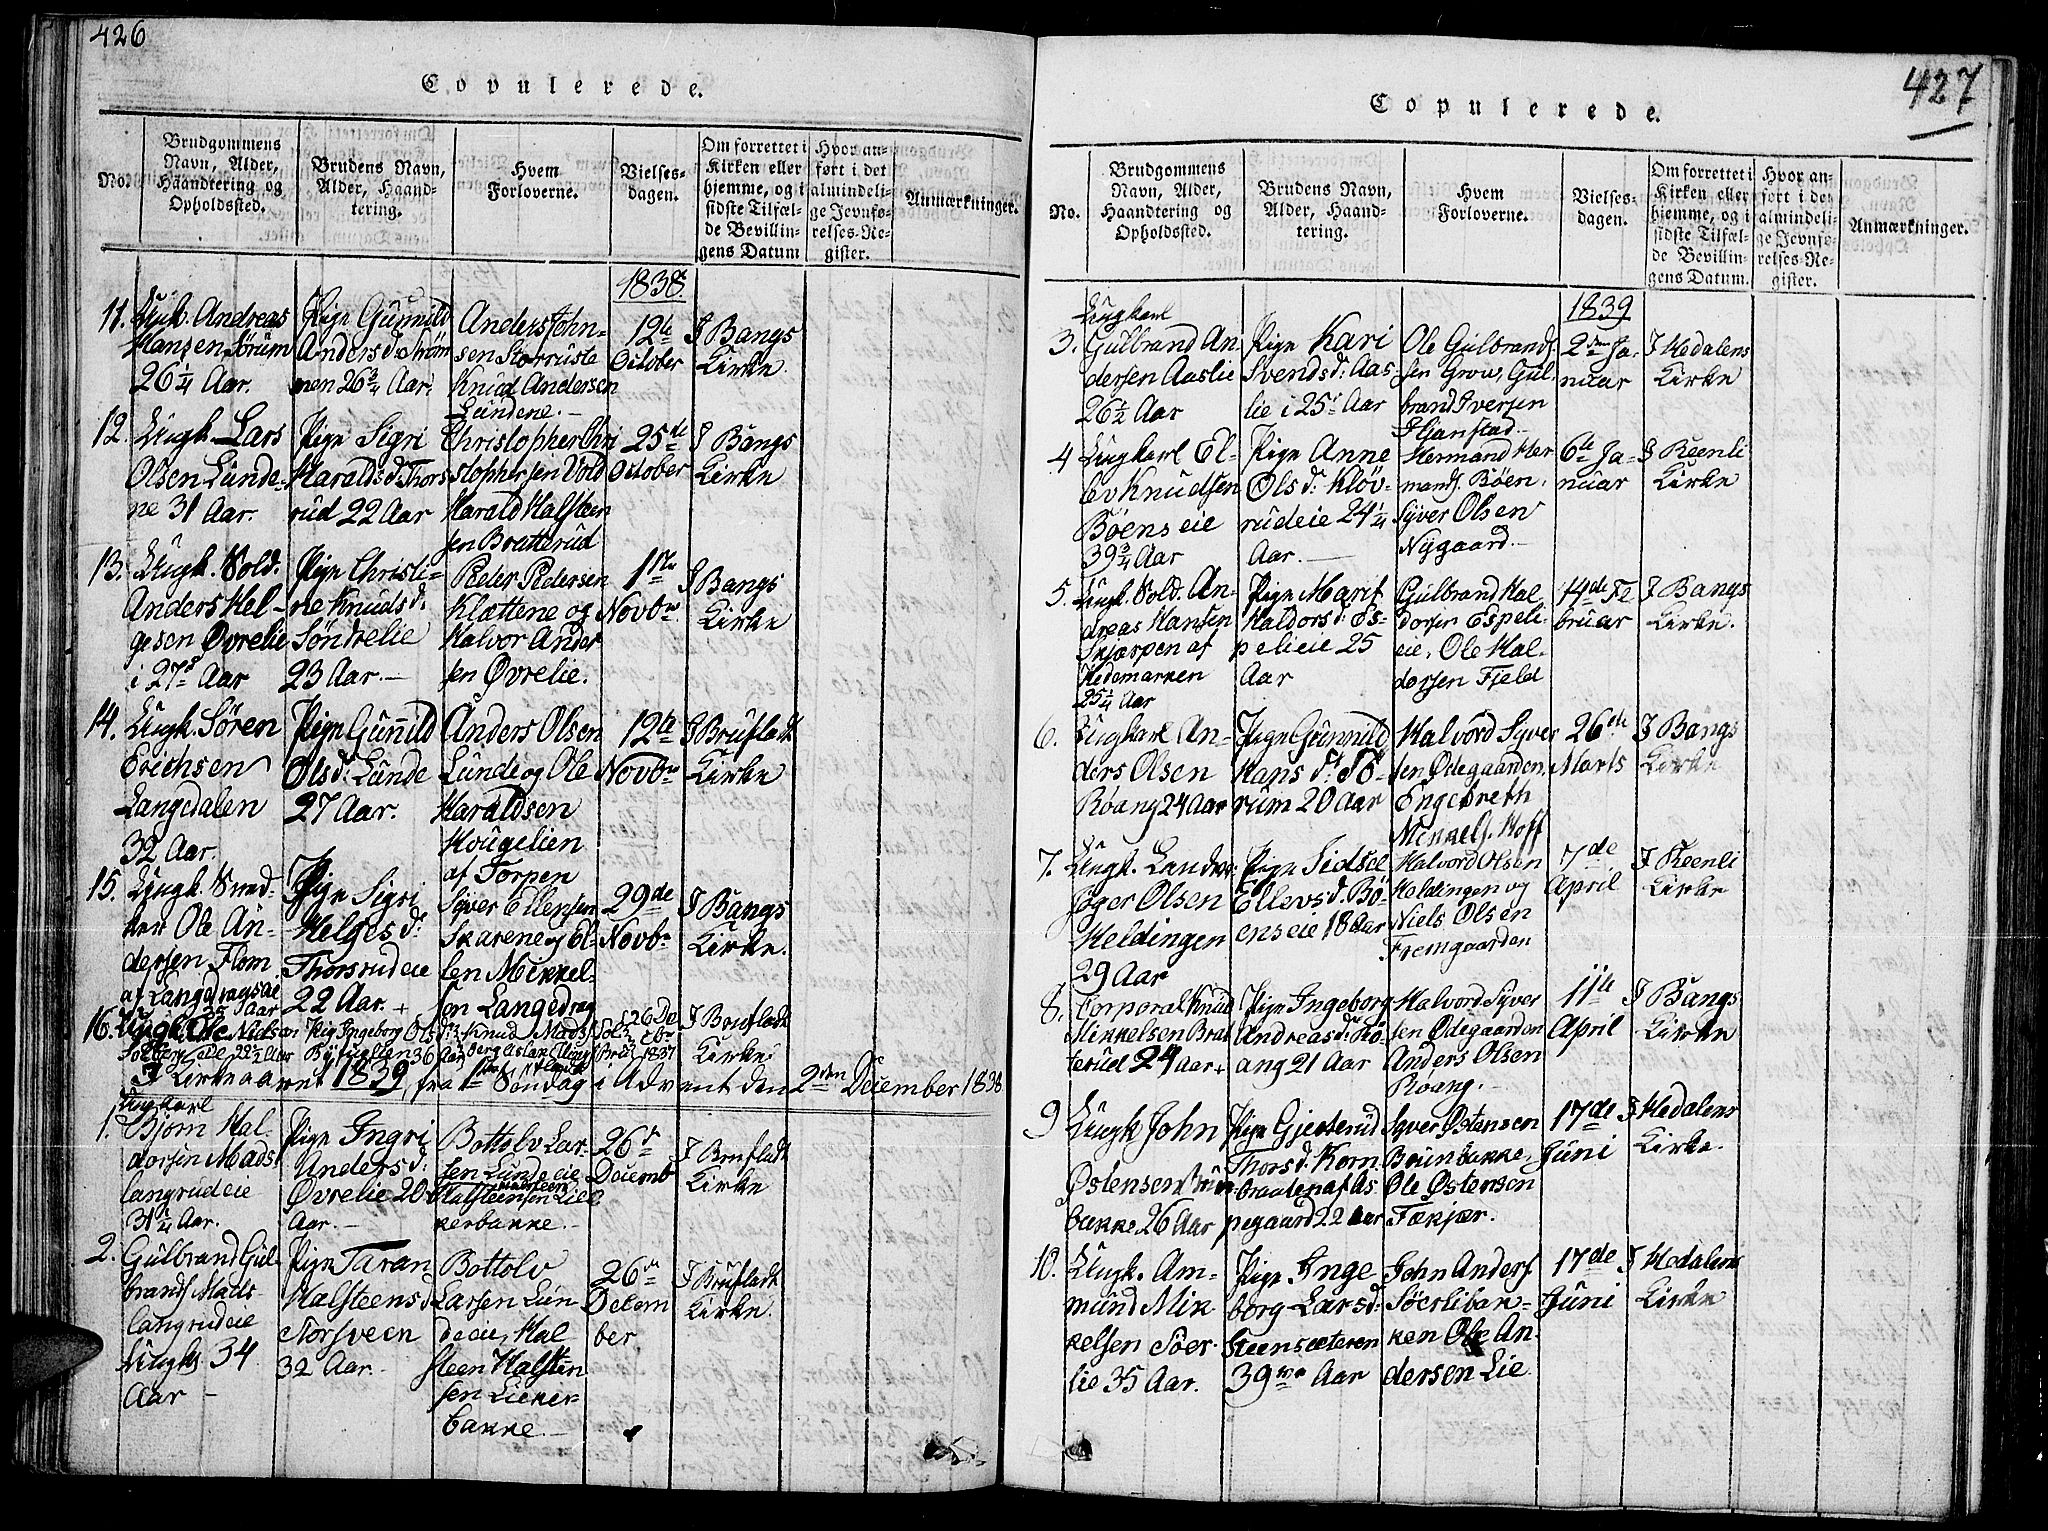 426
Copulerede.
No.
Brudgommens
Navn, Alder,
Haandtering og
Opholdssted.
Brudens Navn,
Alder, Haand-
tering.
Hvem
Forloverne.
Vielses-
dagen.
Om forrettet i
Kirken eller
hjemme, og i
sidste Tilfæl-
de Bevillin-
gens Datum
Hvor an-
ført i det
almindeli-
ge Jevnfø-
relses-Re-
gister.
Anmærkninger.
1838
11.
Ungk. Andreas
Hansen Sørum
26 1/4 Aar.
Pige Gunnild
Andersd: Strøm
men 26 3/4 Aar.
Anders John-
sen Storruste
Knud Andersen
Lundene.-
12te
October
I Bangs
Kirke.
12.
Ungk. Lars
Olsen Lunde-
ne 31 Aar.
Pige Sigri
Haraldsd. Thors
rud 22 Aar
Christopher Chri
stophersen Vold
Harald Halsteen
sen Bratterud
25de
October
I Bangs
Kirke
13.
Ungk. Sold.
Anders Hel-
gesen Øvrelie
i 27de Aar
Pige Christi-
ne Knudsd:
Søndrelie
23 Aar.-
Peder Pedersen
Klættene og
Halvor Ander
sen Øvrelie.
1ste
Novbr.
I Bangs
Kirke
14.
Ungk. Søren
Erichsen
Langedalen
32 Aar.
Pige Gunnild
Olsd: Lunde
27 Aar.
Anders Olsen
Lunde og Ole
Haraldsen
Hougelien
af Torpen
12te
Novbr
I Brufladt
Kirke
15.
Ungk. Sned-
ker Ole An-
dersen Flom
af Langedragseie
35 Aar
Pige Sigri
Helgesd:
Thorsrudeie
22 Aar.
Syver Ellensen
Skarene og El-
len Mikkel-
sen Langedrag
29de
Novbr
I Bangs
Kirke.
16.
Ungk. Ole Nielsen
22 1/2 Aar
Pig Ingeborg Olsd:
36 Aar
Knud Mads
26 De
1837
I Brufladt
Kirke
I Kirkeaaret 1839, fra 1ste Søndag i Advent den 2den December 1838
1.
Ungkarl
Bjørn Hal
dorsen Mads
langrudeie
31 1/4 Aar.
Pige Ingri
Andersd:
Øvrelie 20
Aar.-
Bottolv Lar-
sen Lundeeie
Halsteen
Halsteensen Lie
kerbakke.-
26de
Decemb
I Brufladt
Kirke
2.
Gulbrand Gul
brands. Mads
langrudeie
Ungk 34
Aar -
Pige Taran
Halsteensd
Torsveen
32 Aar.
Bottolv
Larsen Lun
deeie, Hal
steen Halsteen
sen Lieker-
bakke.-
26de
Decem
ber
I Brufladt
Kirke.
427
Copulerede.
No.
Brudgommens
Navn, Alder,
Haandtering og
Opholdssted.
Brudens Navn,
Alder, Haand-
tering.
Hvem
Forloverne.
Vielses-
dagen.
Om forrettet i
Kirken eller
hjemme, og i
sidste Tilfæl-
de Bevillin-
gens Datum.
Hvor an-
ført i det
almindeli-
ge Jevnfø-
relses-Re-
gister.
Anmærkninger.
1839
3.
Ungkarl
Gulbrand An
dersen Aaslie
26 1/2 Aar
Pige Kari
Svendsd: Aas-
lie i 25de Aar
Ole Gulbrand-
sen Grow, Gul
brand Iversen
Hjanstad.-
2den Ja-
nuar
I Hedalens
Kirke
4
Ungkarl El-
lev Knudsen
Bøenseie
39 3/4 Aar
Pige Anne
Olsd: Kløv-
rudeie 24 1/4
Aar.-
Hermand Her
mands. Bøen,
Syver Olsen
Nygaard.-
6te Ja-
nuar
I Reenli
Kirke
5.
Ungk. Sold. An-
dreas Hansen
Skjærpen af
Hedemarken
25 1/4 Aar
Pige Marit
Haldorsd: Es-
pelieie 25
Aar
Gulbrand Hal
dorsen Espeli-
eie, Ole Hal-
dorsen Fjeld
14de Fe
bruar
I Bangs
Kirke.
6.
Ungkarl An-
ders Olsen
Røang 24 Aar
Pige Gunnild
Hans d: Sø-
rum 20 Aar
Halvord Syver
sen Ødegaarden,
Engebreth
Mikkels. Hoff
26de
Marts
I Bangs
Kirke
7.
Ungk. Landv.
Jæger Olsen
Heldingen
29 Aar
Pige Sidsel
Ellevsd. Bø-
enseie 18 Aar
Halvord Olsen
Heldingen og
Niels Olsen
Fremgaarden
7de
April
I Reenli
Kirke
8.
Corporal Knud
Mikkelsen Brat
terud 24 Aar
Pige Ingeborg
Andreasd: Rø-
ang 21 Aar
Halvord Syver
sen Ødegaarden
Anders Olsen
Røang.-
11te
April
I Bangs
Kirke
9
Ungk John
Østensen Brun
bakke 26 Aar
Pige Gjertrud
Thorsd. Korn
braaten af As-
pegaard 22 Aar
Syver Østensen
Brunbakke,
Ole Østensen
Tækjær.
17de
Juni
I Hedalens
Kirke.
10.
Ungk. Am-
mund Mik-
kelsen Søer-
lie 35 Aar.
Pige Inge
borg Larsd:
Steensæteren
39 Aar
John Anders
Søerlibak-
ken Ole An-
dersen Lie
17de
Juni
I Hedalens
Kirke